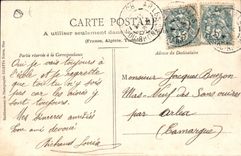 CARTE POSTALE
A utiliser seulement dans le
(France, Algérie,
Partie réservée à la Correspondance
Adresse du Destinataire
Oui je vais toujours à
l'école et je regrette
que toi tu n'y sois
pas car les aînés y
sont toujours.
Mes sincères amitiés
ton ami dévoué
Richaud Louis
Monsieur Jacques
Mas-Neuf des Sansouires
par Arles
(Camargue)